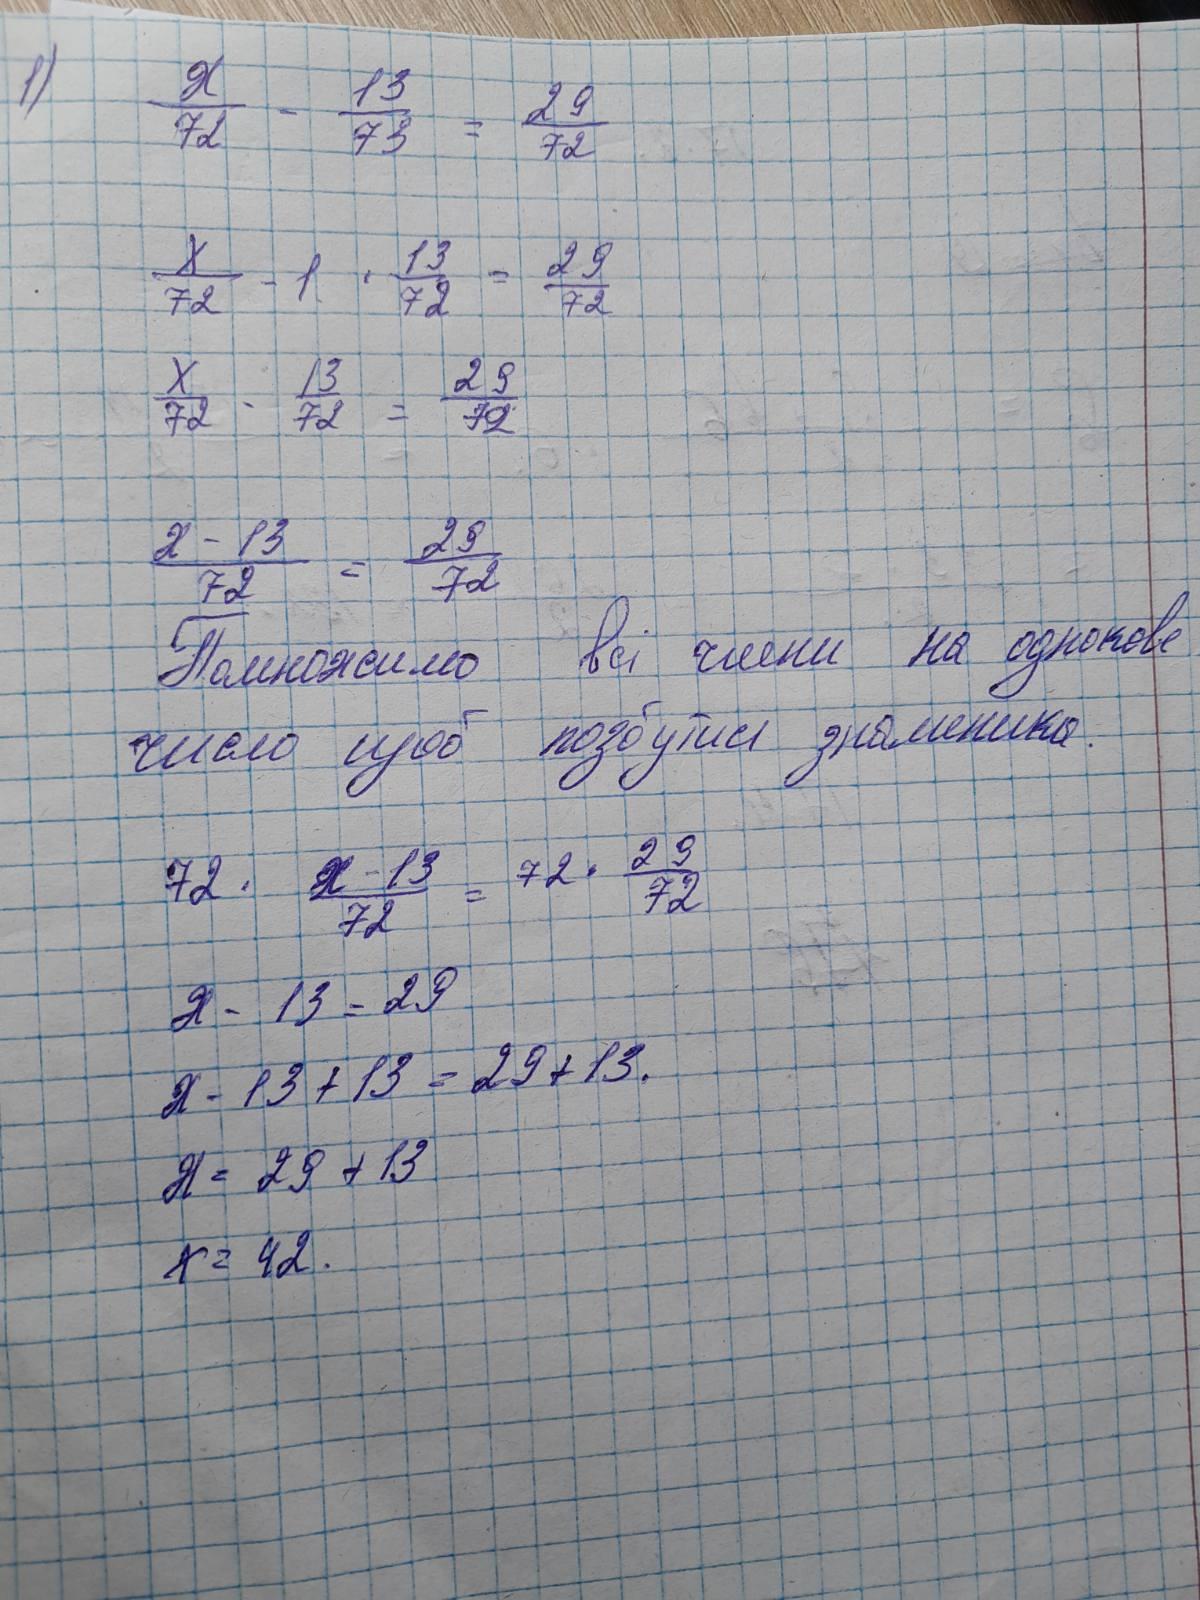 1) x/72 - 13/73 = 29/72
x/72 - 1 · 13/72 = 29/72
x/72 - 13/72 = 29/72
x - 13/72 = 29/72
Помножимо всі члени на однокове
число щоб позбутись знаменика.
72 · x - 13/72 = 72 · 29/72
x - 13 = 29
x - 13 + 13 = 29 + 13.
x = 29 + 13
x = 42.